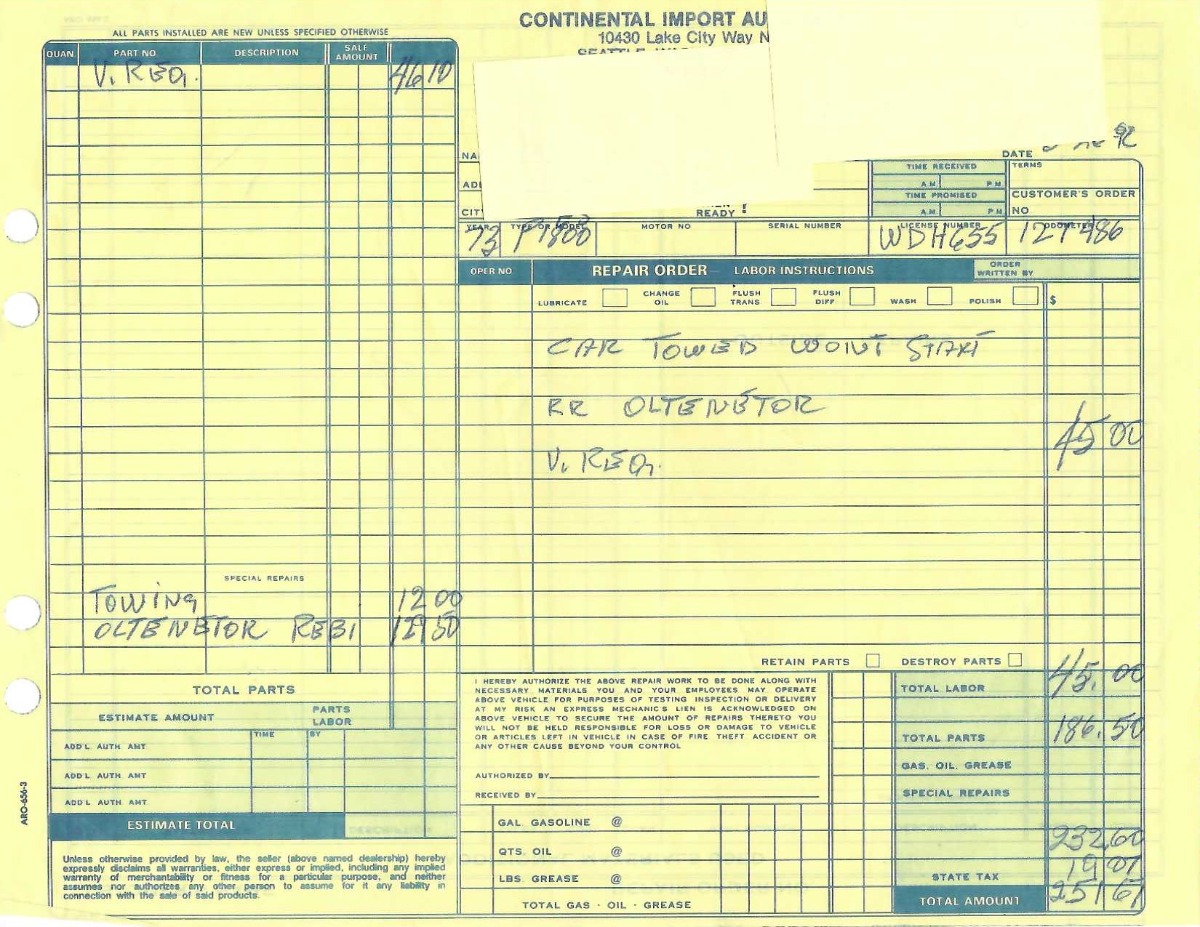 CONTINENTAL IMPORT AU
10430 Lake City Way N
ALL PARTS INSTALLED ARE NEW UNLESS SPECIFIED OTHERWISE
QUAN PART NO. DESCRIPTION SALE AMOUNT
V. REG. 46 10
DATE
TIME RECEIVED TERMS
A.M. P.M.
TIME PROMISED CUSTOMER'S ORDER
A.M. P.M. NO
READY
YEAR TYPE OR MODEL MOTOR NO SERIAL NUMBER LICENSE NUMBER ODOMETER
73 P1800 WDH655
OPER NO. REPAIR ORDER— LABOR INSTRUCTIONS ORDER WRITTEN BY
LUBRICATE CHANGE OIL FLUSH TRANS FLUSH DIFF WASH POLISH $
CAR TOWED WOINT START
RR OLTENETOR
45 00
V. REG.
SPECIAL REPAIRS
TOWING 12 00
OLTENETOR REBI 129 50
RETAIN PARTS DESTROY PARTS
TOTAL PARTS
ESTIMATE AMOUNT PARTS LABOR
TIME BY
ADD'L AUTH AMT
ADD'L AUTH AMT
ADD'L AUTH AMT
ESTIMATE TOTAL
Unless otherwise provided by law, the seller (above named dealership) hereby
expressly disclaims all warranties, either express or implied, including any implied
warranty of merchantability or fitness for a particular purpose, and neither
assumes nor authorizes any other person to assume for it any liability in
connection with the sale of said products.
ARO-656-3
I HEREBY AUTHORIZE THE ABOVE REPAIR WORK TO BE DONE ALONG WITH
NECESSARY MATERIALS YOU AND YOUR EMPLOYEES MAY OPERATE
ABOVE VEHICLE FOR PURPOSES OF TESTING INSPECTION OR DELIVERY
AT MY RISK AN EXPRESS MECHANIC'S LIEN IS ACKNOWLEDGED ON
ABOVE VEHICLE TO SECURE THE AMOUNT OF REPAIRS THERETO YOU
WILL NOT BE HELD RESPONSIBLE FOR LOSS OR DAMAGE TO VEHICLE
OR ARTICLES LEFT IN VEHICLE IN CASE OF FIRE THEFT ACCIDENT OR
ANY OTHER CAUSE BEYOND YOUR CONTROL
AUTHORIZED BY
RECEIVED BY
GAL. GASOLINE @
QTS. OIL @
LBS. GREASE @
TOTAL GAS · OIL · GREASE
TOTAL LABOR 45.00
TOTAL PARTS 186.50
GAS, OIL, GREASE
SPECIAL REPAIRS
232.60
STATE TAX 19 07
TOTAL AMOUNT 251 67